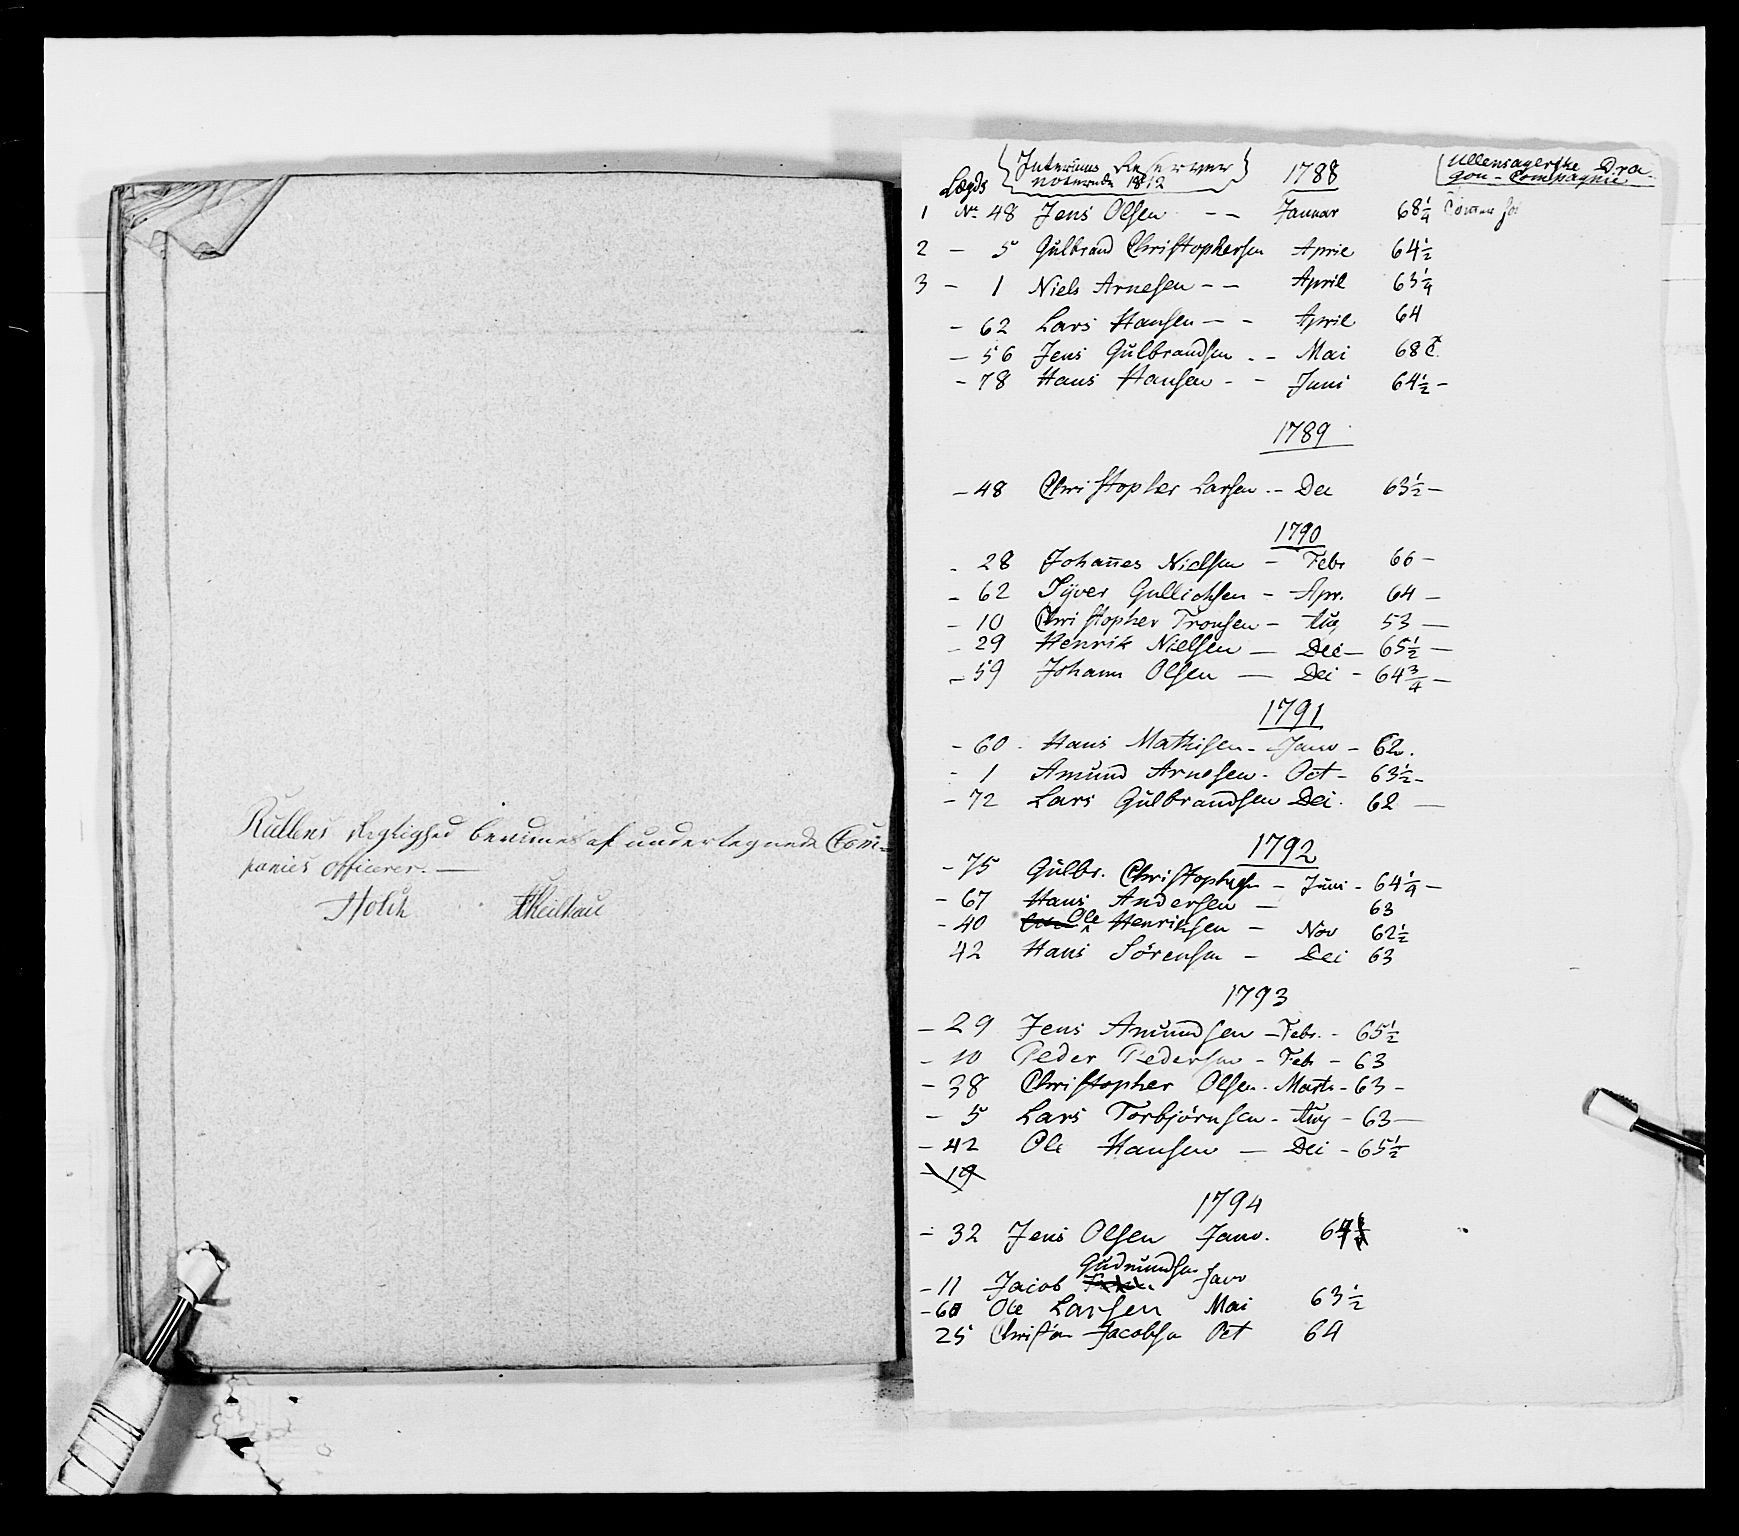 Rullens Rigtighed bevidnes af undertegnede Com-
panies Officerer. —
Holck Theilkau
Lægds { Interims Reserver } 1788 { Ullensagerske Dra-
noterede 1812 gon-Compagnie
1 No 48 Jens Olsen - - Januar 68 1/4
2 - 5 Gulbrand Christophersen April 64 1/2
3 - 1 Niels Arnesen - - April 63 1/4
- 62 Lars Hansen - - April 64
- 56 Jens Gulbrandsen - - Mai 68
- 78 Hans Hansen - - Juni 64 1/2 -
1789
- 48 Christopher Larsen - Dec 63 1/2 -
1790
- 28 Johannes Nielsen - Febr 66 -
- 62 Syver Gullichsen - Apr. 64 -
- 10 Christopher Tronsen - Aug 53 -
- 29 Henrik Nielsen - Dec - 65 1/2 -
- 59 Johann Olsen - Dec - 64 3/4 -
1791
- 60 - Hans Mathisen - Janv - 62.
- 1 Amund Arnesen - Oct - 63 1/2 -
- 72 Lars Gulbrandsen Dec. 62 -
1792
- 75 Gulbr. Christophersen - Juni - 64 1/4 -
- 67 Hans Andersen - 63
- 40 Ole Henriksen - Nov 62 1/2
42 Hans Sörensen - Dec 63
1793
- 29 Jens Amundsen - Febr. - 65 1/2
- 10 Peder Pedersen - Feb - 63
- 38 Christopher Olsen - Marts - 63 -
- 5 Lars Torbjörnsen - Aug - 63 -
- 42 Ole Hansen - Dec - 65 1/2
- 19
1794
- 32 Jens Olsen Janv. 64
Gudmundsen
- 11 Jacob Janv
- 60 Ole Larsen Mai 63 1/2
25 Christian Jacobsen Oct 64